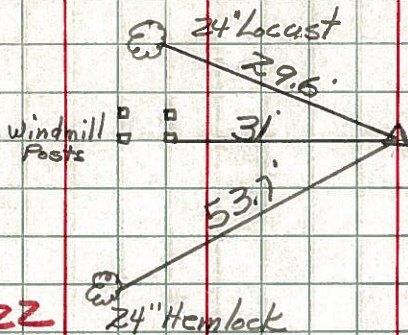 24" Locast
29.6'
windmill
Posts
31'
53.7'
22
24" Hemlock